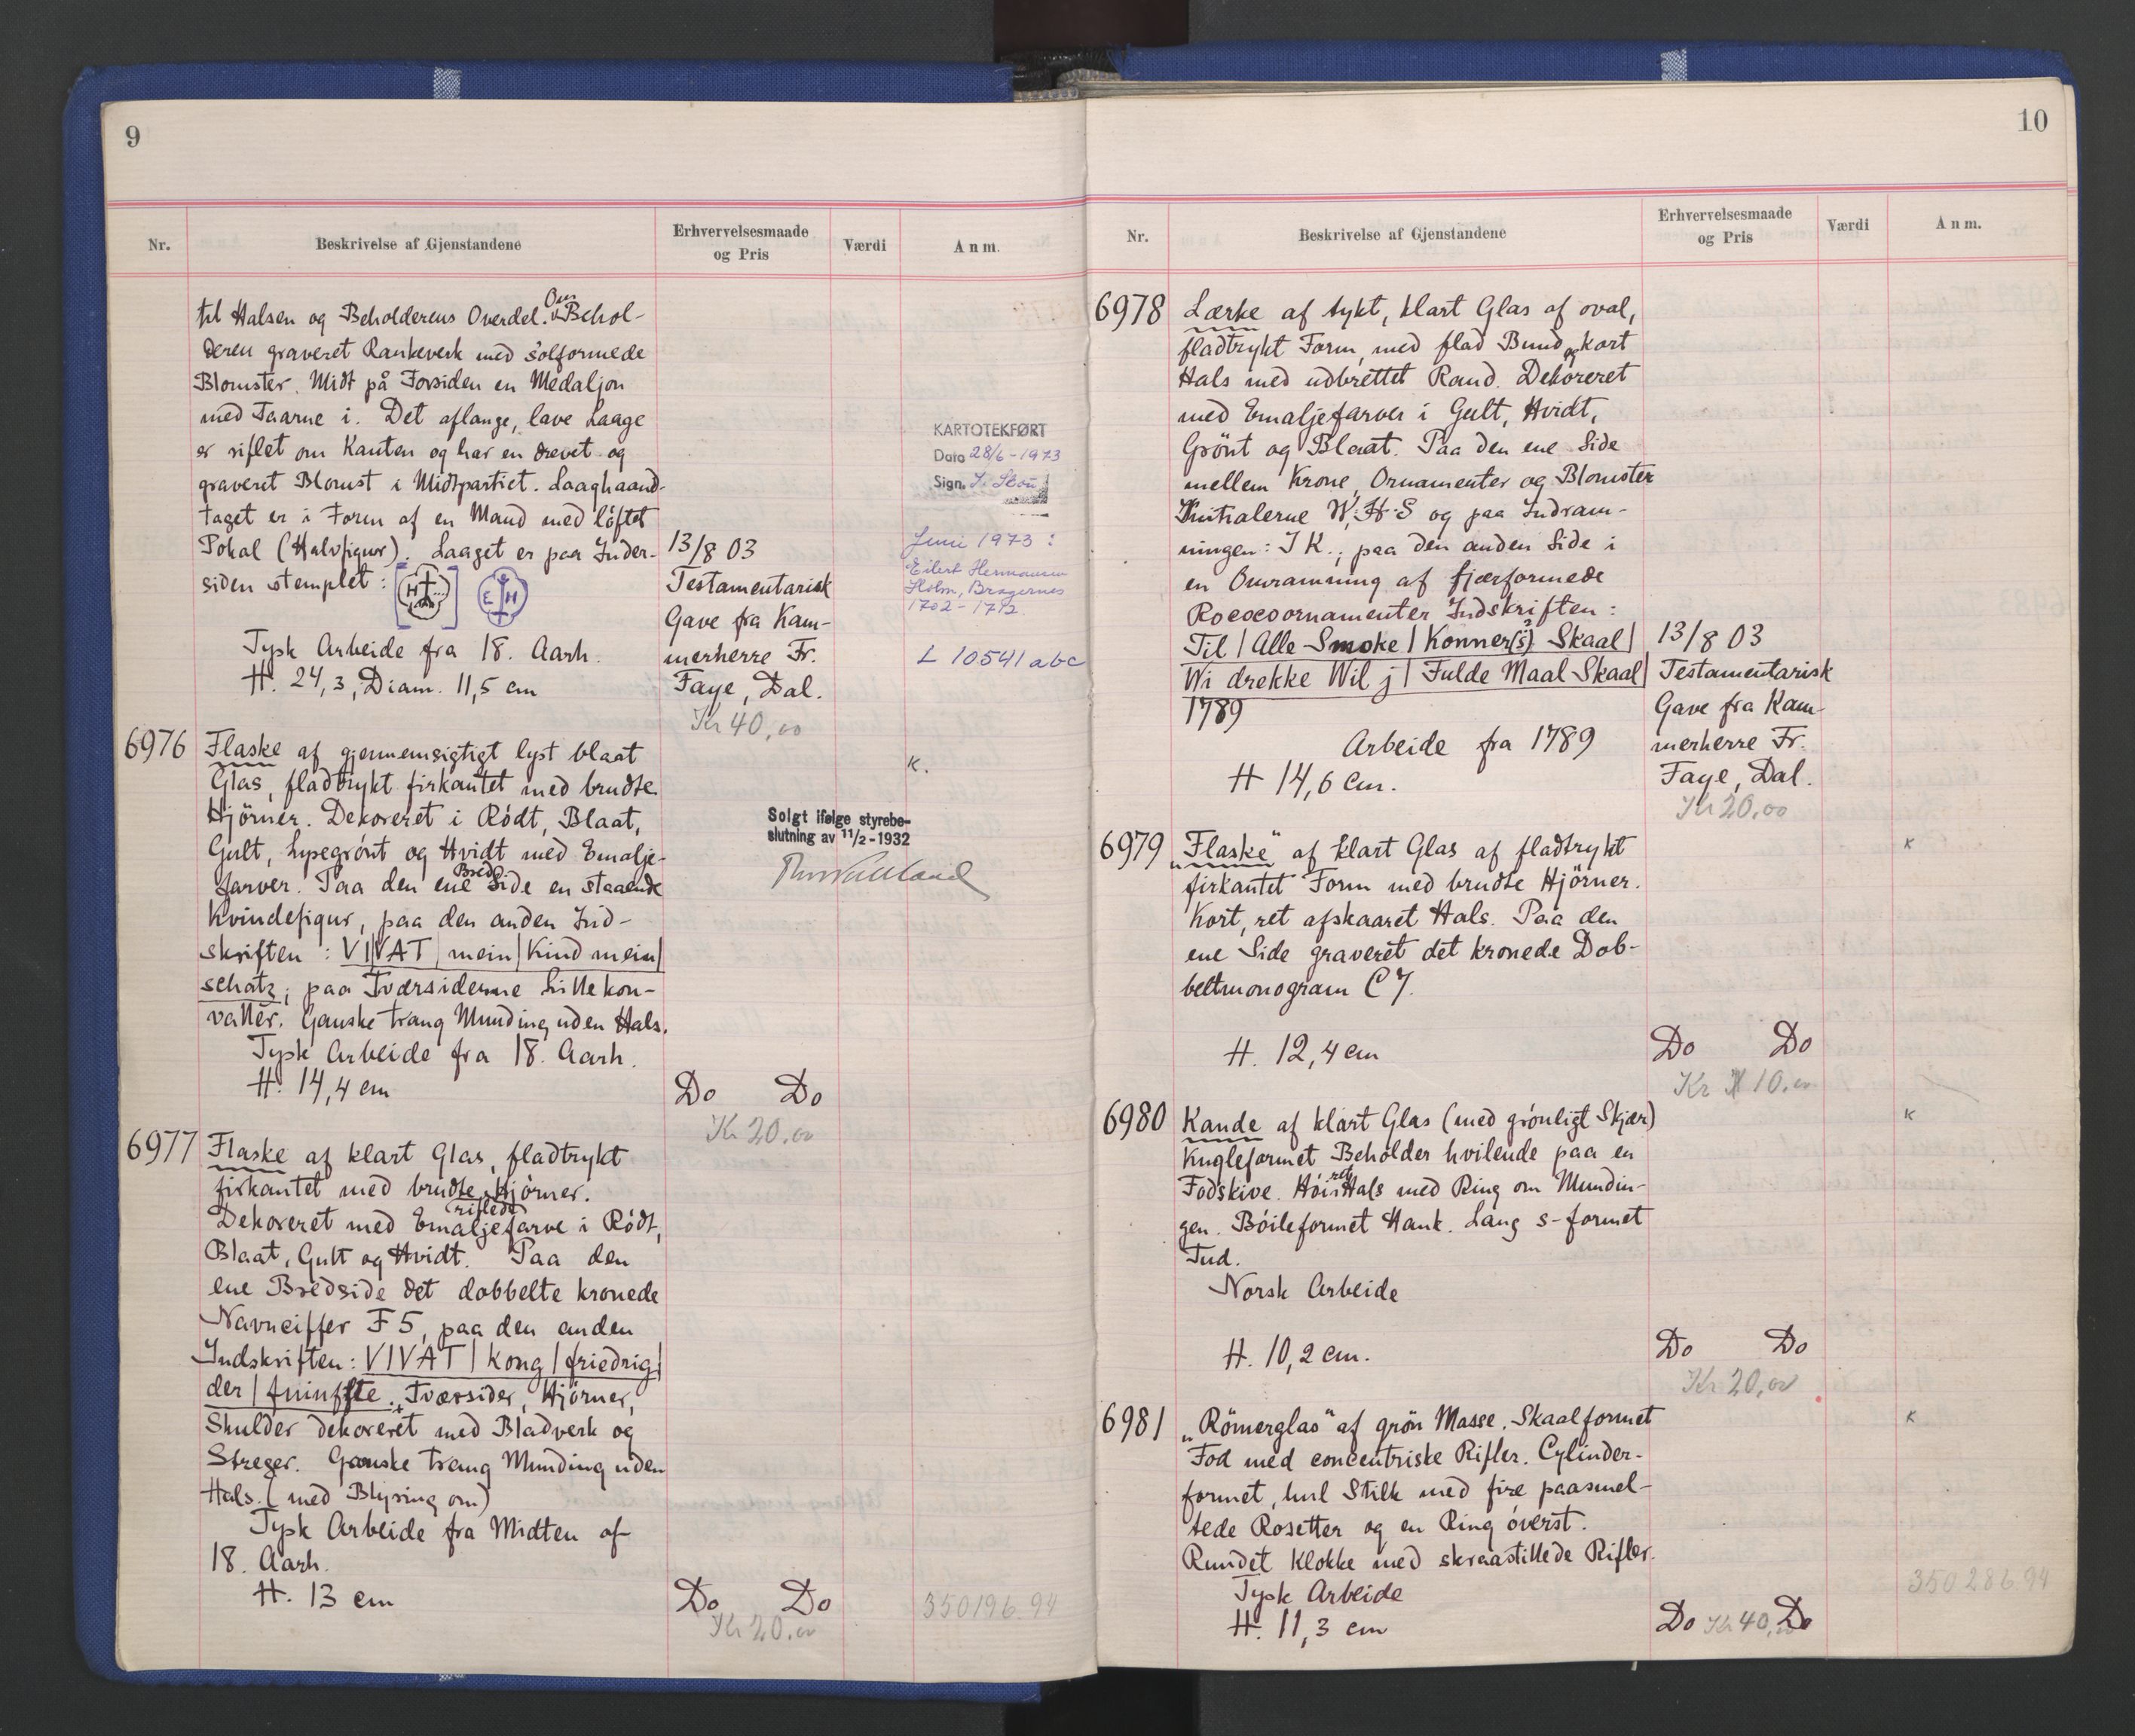 9
Nr.
Beskrivelse af Gjenstandene
Erhvervelsesmaade
og Pris
Værdi
Anm.
til Halsen og Beholderens Overdel. Over Behol-
deren graveret Rankeverk med solformede
Blomster. Midt på Forsiden en Medaljon
med Taarne i. Det aflange, lave Laage
er riflet om Kanten og har en drevet og
graveret Blomst i Midtpartiet. Laaghaand-
taget er i Form af en Mand med løftet
Pokal (Halvfigur). Laaget er paa Inder-
siden stemplet: [H] E H
Tysk Arbeide fra 18. Aarh.
H. 24,3, Diam. 11,5 cm
13/8 03
Testamentarisk
Gave fra Kam-
merherre Fr.
Faye, Dal.
Kr 40,00
KARTOTEKFØRT
Dato 28/6-1973
Sign.
Juni 1973:
Eilert Hermansen
Holm, Bragernes
1702-1712
L 10541 abc
6976
Flaske af gjennemsigtigt lyst blaat
Glas, fladtrykt firkantet med brudte
Hjörner. Dekoreret i Rödt, Blaat,
Gult, Lysegrönt og Hvidt med Emalje-
farver. Paa den ene Bredside en staaende
Kvindefigur, paa den anden Ind-
skriften: VI|VAT|mein|Kind mein|
schatz; paa Tværsiderne Lillekon-
valler. Ganske trang Munding uden Hals.
Tysk Arbeide fra 18. Aarh.
H. 14,4 cm
Do Do
Kr 20,00
K.
Solgt ifølge styrebe-
slutning av 11/2-1932
6977
Flaske af klart Glas, fladtrykt
firkantet med brudte riflede Hjörner.
Dekoreret med Emaljefarve i Rödt,
Blaat, Gult og Hvidt. Paa den
ene Bredside det dobbelte kronede
Navneciffer F5, paa den anden
Indskriften: VIVAT|kong|friedrig|
der|fuinffte. Tværsider, Hjörner,
Skulder dekoreret med Bladverk og
Streger. Ganske trang Munding uden
Hals. (med Blyring om)
Tysk Arbeide fra Midten af
18. Aarh.
H. 13 cm
Do Do
Kr 20,00
350196.94
10
Nr.
Beskrivelse af Gjenstandene
Erhvervelsesmaade
og Pris
Værdi
Anm.
6978
Lærke af tykt, klart Glas af oval,
fladtrykt Form, med flad Bund og kort
Hals med udbrettet Rand. Dekoreret
med Emaljefarver i Gult, Hvidt,
Grönt og Blaat. Paa den ene Side
mellem Krone, Ornamenter og Blomster
Initialerne W.H.S og paa Indram-
ningen: I K.; paa den anden Side i
en Omramning af fjærformede
Rococoornamenter Indskriften:
Til|Alle Smoke|Konner(s?) Skaal|
Wi drekke Wil j|Fulde Maal Skaal|
1789
Arbeide fra 1789
H 14,6 Cm.
13/8 03
Testamentarisk
Gave fra Kam-
merherre Fr.
Faye, Dal.
Kr 20,00
6979
"Flaske" af klart Glas af fladtrykt
firkantet Form med brudte Hjörner.
Kort, ret afskaaret Hals. Paa den
ene Side graveret det kronede Dob-
beltmonogram C7.
H. 12,4 cm
Do Do
Kr 10.00
K
6980
Kande af klart Glas (med grönligt Skjær)
Kugleformet Beholder hvilende paa en
Fodskive. Höi ret Hals med Ring om Mundin-
gen. Böileformet Hank. Lang s-formet
Tud.
Norsk Arbeide
H. 10,2 cm.
Do Do
Kr 20,00
K
6981
"Römerglas" af grön Masse. Skaalformet
Fod med concentriske Rifler. Cylinder-
formet, hul Stilk med fire paasmel-
tede Rosetter og en Ring överst.
Rundet Klokke med skraastillede Rifler.
Tysk Arbeide
H. 11,3 cm
Do Kr 40,00 Do
K
350286.94